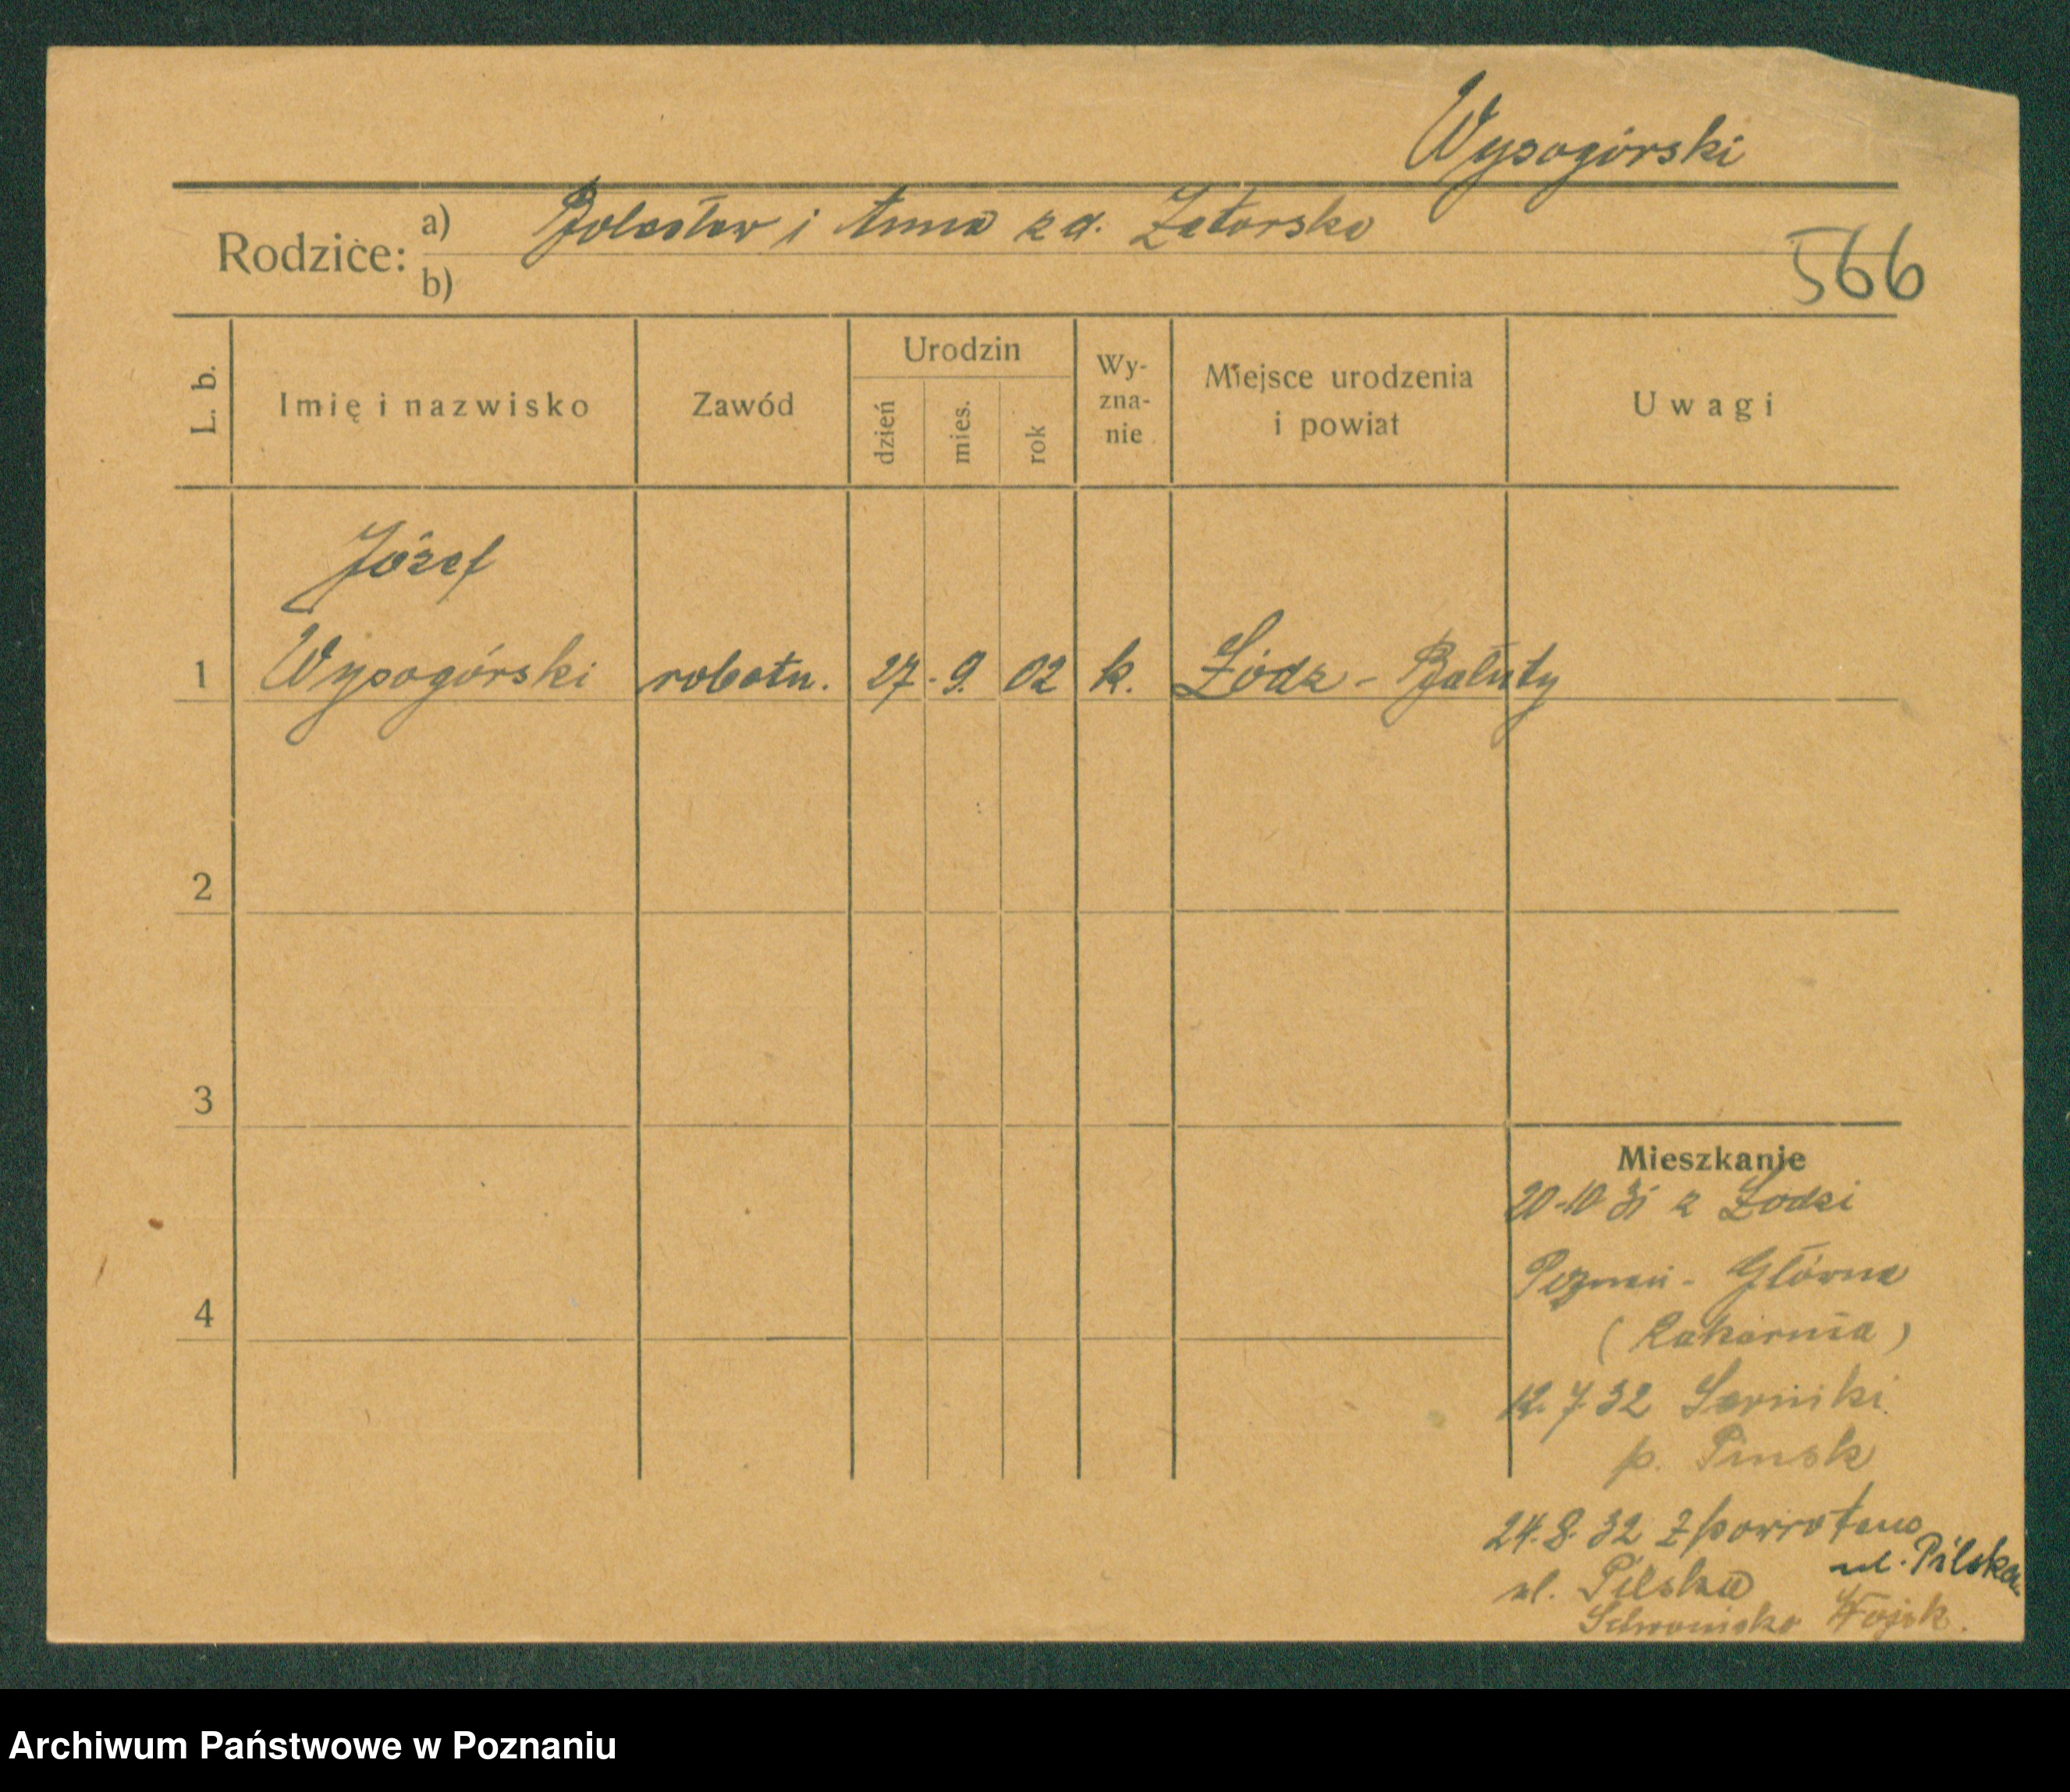 Wysogórski
Rodzice: a) Bolesław i Anna z d. Zatorska
b)
566
L. b. Imię i nazwisko Zawód Urodzin dzień mies. rok Wy-zna-nie Miejsce urodzenia i powiat Uwagi
Józef
1 Wysogórski robotn. 27. 9. 02 k. Łódz - Bałuty
2
3
Mieszkanie
20-10 31 z Łodzi
Poznań - Główna
4
(Rakarnia)
12.7.32 Serniki
p. Pinsk
24.8.32 z powrotem
ul. Pilska ul. Pilska
Schronisko Wojsk.
Archiwum Państwowe w Poznaniu